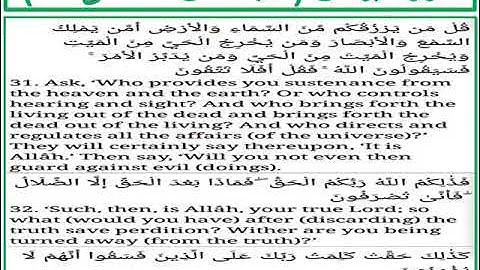 قُلْ مَن يَرْزُقُكُم مِّنَ السَّمَاءِ وَالْأَرْضِ أَمَّن يَمْلِكُ
السَّمْعَ وَالْأَبْصَارَ وَمَن يُخْرِجُ الْحَيَّ مِنَ الْمَيِّتِ
وَيُخْرِجُ الْمَيِّتَ مِنَ الْحَيِّ وَمَن يُدَبِّرُ الْأَمْرَ ۚ
فَسَيَقُولُونَ اللَّهُ ۚ فَقُلْ أَفَلَا تَتَّقُونَ
31. Ask, ‘Who provides you sustenance from
the heaven and the earth? Or who controls
hearing and sight? And who brings forth the
living out of the dead and brings forth the
dead out of the living? And who directs and
regulates all the affairs (of the universe)?’
They will certainly say thereupon, ‘It is
Allâh.’ Then say, ‘Will you not even then
guard against evil (doings).
فَذَٰلِكُمُ اللَّهُ رَبُّكُمُ الْحَقُّ ۖ فَمَاذَا بَعْدَ الْحَقِّ إِلَّا الضَّلَالُ
ۖ فَأَنَّىٰ تُصْرَفُونَ
32. ‘Such, then, is Allâh, your true Lord; so
what (would you have) after (discarding) the
truth save perdition? Wither are you being
turned away (from the truth)?’
كَذَٰلِكَ حَقَّتْ كَلِمَتُ رَبِّكَ عَلَى الَّذِينَ فَسَقُوا أَنَّهُمْ لَا